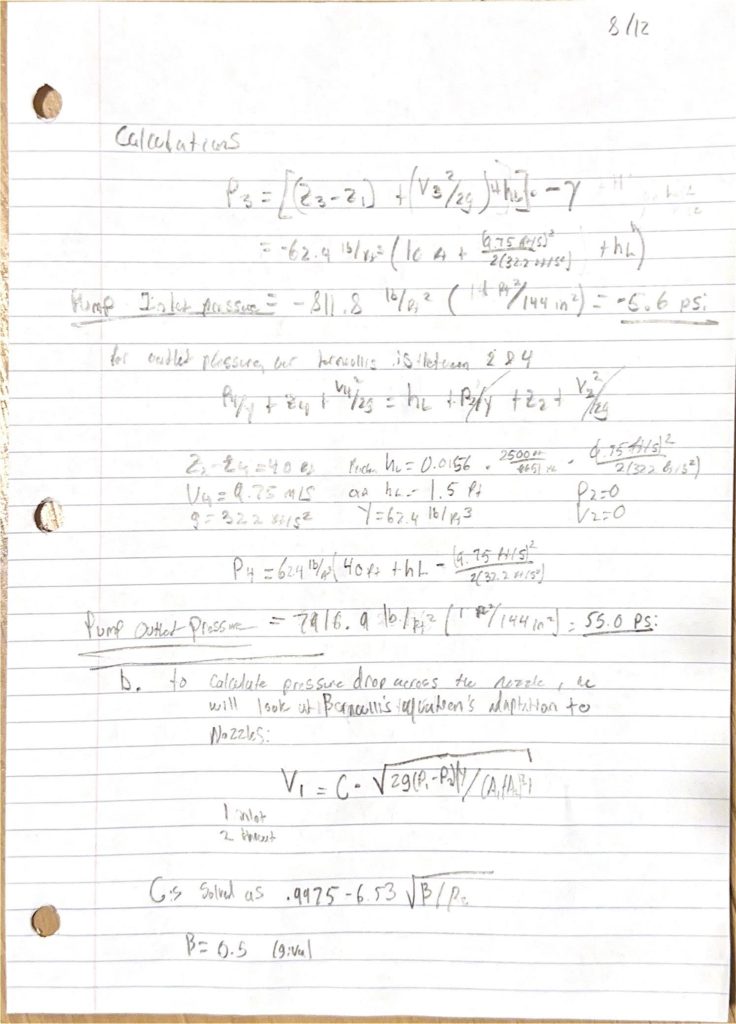 8/12
Calculations
P3 = [(Z3-Z1) + (V3²/2g) + hL] · -γ
= -62.4 lb/ft³ (10 ft + (9.75 ft/s)² / 2(32.2 ft/s²) + hL)
Pump Inlet pressure = -811.8 lb/ft² (1 ft²/144 in²) = -5.6 psi
for outlet pressure, our bernoullis is between 2 & 4
P4/γ + Z4 + V4²/2g = hL + P2/γ + Z2 + V2²/2g
Z2-Z4 = 40 ft hL = 0.0156 · 2500 ft / · (9.75 ft/s)² / 2(32.2 ft/s²)
V4 = 9.75 m/s hL = 1.5 ft P2=0
g = 32.2 ft/s² γ=62.4 lb/ft3 V2=0
P4 = 62.4 lb/ft³ (40 ft + hL - (9.75 ft/s)² / 2(32.2 ft/s²)
Pump Outlet Pressure = 7916.9 lb/ft² (1 ft²/144 in²) = 55.0 psi
b. to calculate pressure drop across the nozzle, we
will look at Bernoulli's equation's adaptation to
Nozzles:
V1 = C · √2g(P1-P2)/γ/(A1/A2)²-1
1 inlet
2 throat
C is Solved as .9975-6.53 √B/
B = 0.5 (given)